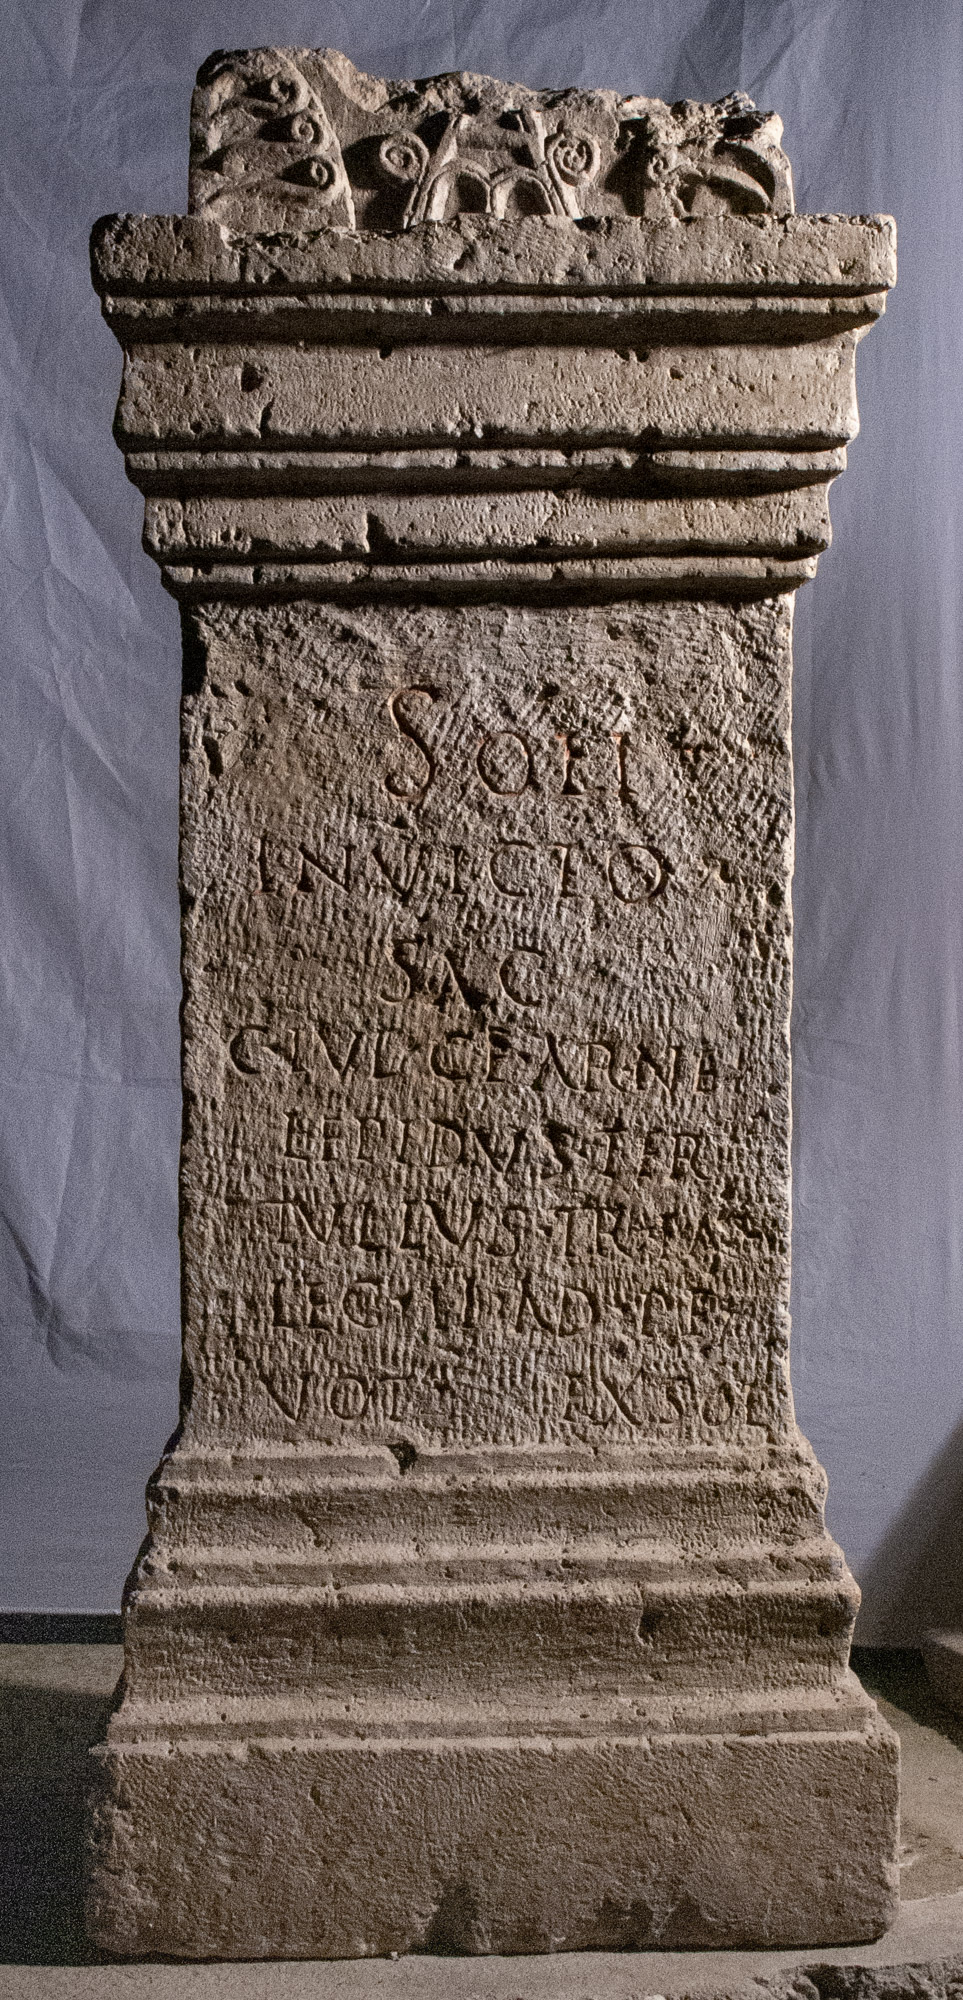 SOLI
INVICTO
SAC
C·IVL·CF·ARNE
LEPIDVS·TER
TVLLVS·TR·
LEG·II·AD·PF
VOT EX SOL